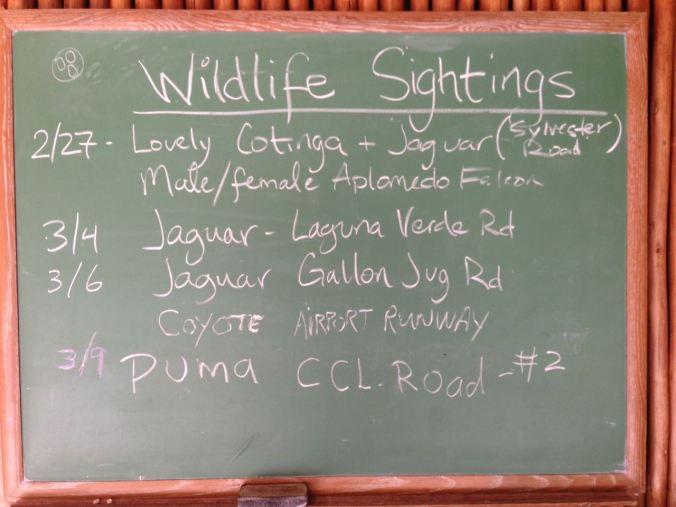 Wildlife Sightings
2/27 - Lovely Cotinga + Jaguar (Sylvester Road)
Male/female Aplomedo Falcon
3/4 Jaguar - Laguna Verde Rd
3/6 Jaguar Gallon Jug Rd
COYOTE AIRPORT RUNWAY
3/9 PUMA CCL. Road - #2